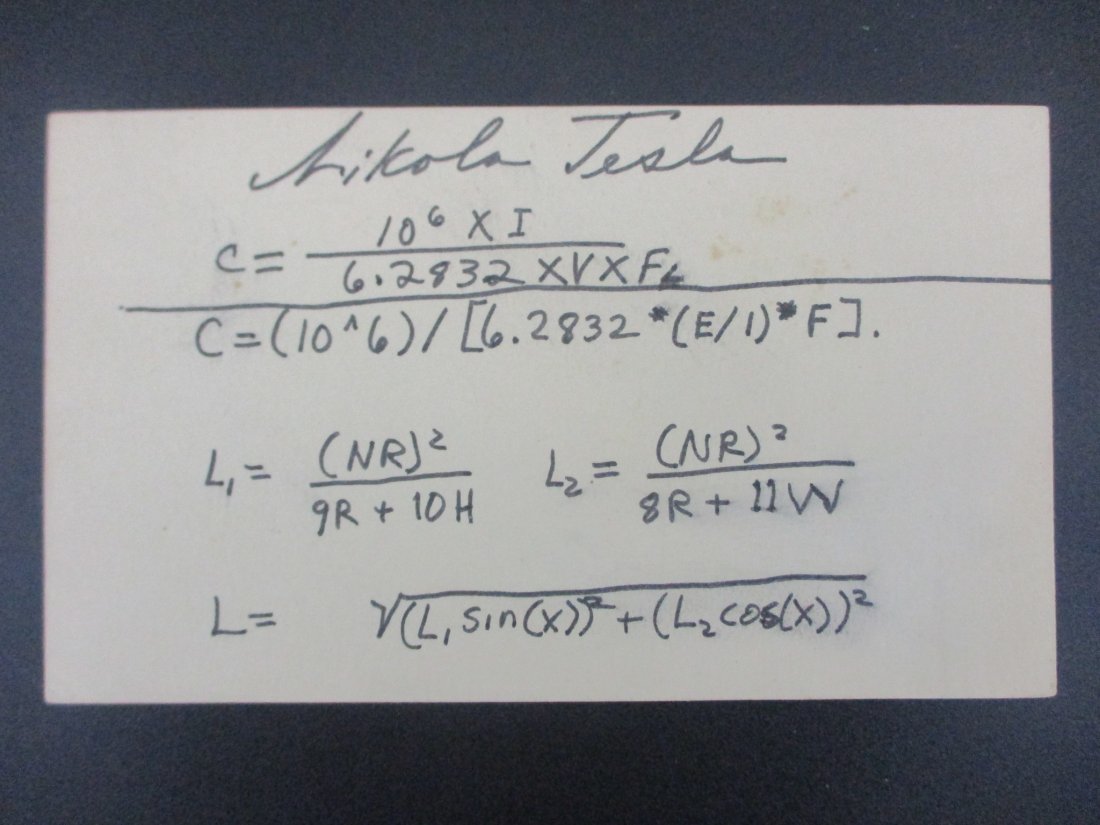 Nikola Tesla
C = 10⁶ X I / 6.2832 X V X F
C = (10^6) / [6.2832 * (E/I) * F].
L₁ = (NR)² / 9R + 10H L₂ = (NR)² / 8R + 11W
L = √(L₁ sin(x))² + (L₂ cos(x))²